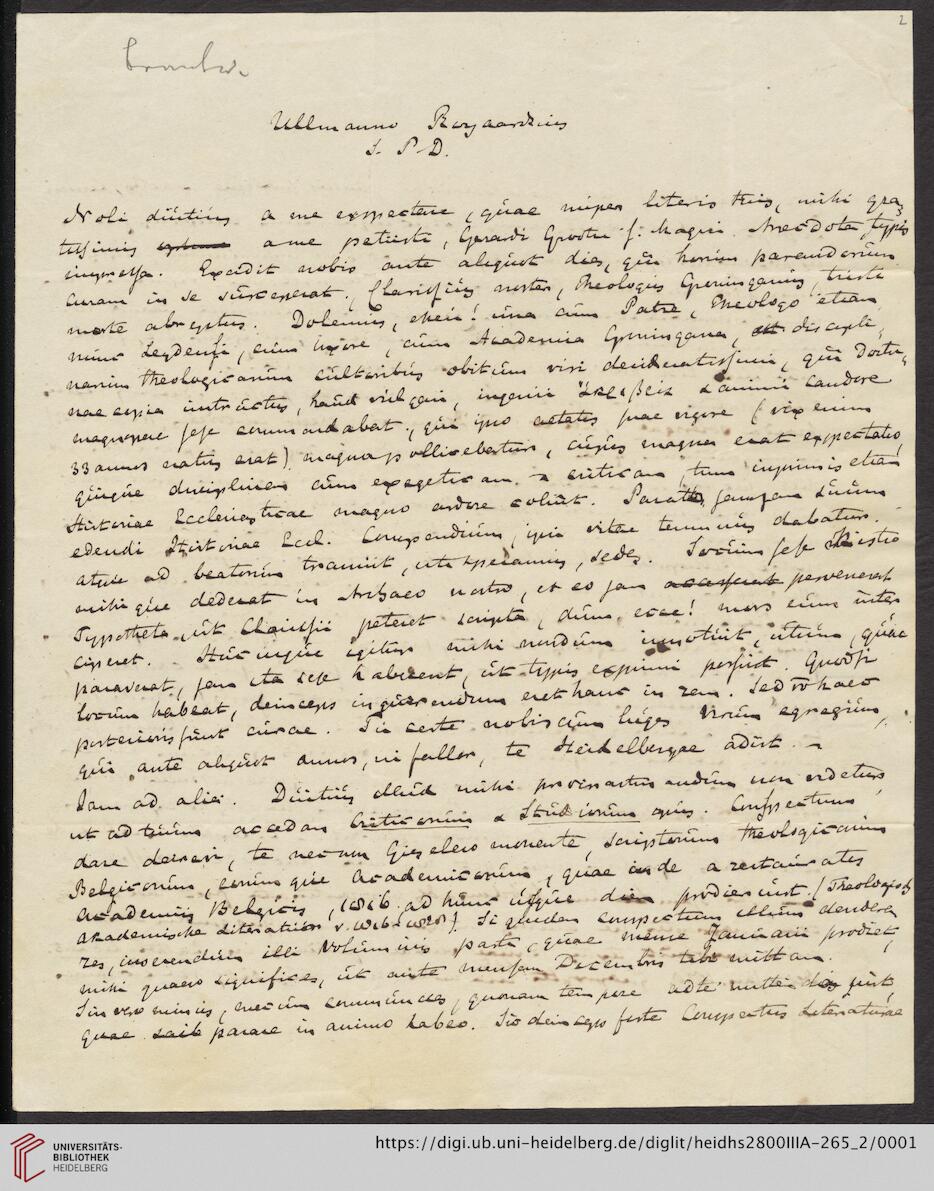 2
Ullmanno Royaardsius
S. P. D.
Noli diutius a me exspectare, quae nuper literis tuis, mihi gra-
tissimis a me petiisti, Gerardi Groote s. Magni Anecdota, typis
impressa. Excidit nobis ante aliquot dies, qui horum parandorum
curam in se susceperat, Clarissius noster, Theologus Groninganus, tristi
morte abreptus. Dolemus, eheu! una cum Patre, Theologo etiam
nunc Leydensi, cum Uxore, cum Academia Groningana, discipli-
narum theologicarum cultoribus obitum viri desideratissimi, qui doctri-
nae copia instructus, haud vulgari, ingenii & animi candore
magnopere sese commendabat, qui ipso aetatis suae vigore (vix enim
33 annos natus erat) magna pollicebatur, cujus magna erat exspectatio,
quique disciplinam cum exegeticam & criticam tum inprimis etiam
Historiae Ecclesiasticae magno ardore coluit. Parati jamjam
edendi Historiae Eccl. Compendium, ipsi vitae terminus dabatur.
atque ad beatorum transiit, uti speramus, sedes. Socium sese
mihi que dederat in Archaeo nostro, et eo jam pervenerat
Typotheta, ut Clarissii peteret scripta, dum, ecce! mors eum inter
ciperet. Huc usque igitur mihi nondum innotuit, utrum, quae
paraverat, jam ita sese haberent, ut typis exprimi possint. Quod si
locum habeat, deinceps inquirendum erit hanc in rem. Sed haec
posterioris sunt curae. Tu certe nobiscum luges virum egregium,
qui ante aliquot annos, ni fallor, te Heidelbergae adiit. –
Jam ad alia. Diutius illud mihi procrastinandum non videtur
ut ad tuum accedam Criticorum & Studiorum opus. Conspectum
dare decrevi, te necnon Gieselero monente, scriptorum theologicorum
Belgicorum, eorumque Academicorum, quae inde a restauratis
Academiis Belgicis, 1816 ad hunc usque diem prodierunt. (Theologisch
Akademische Literatuur v. 1816-1828). Si quidem conspectum illum desidera-
res, inserendum illi Voluminis parti, quae mense Januarii prodiet,
mihi quaeso significes, ut ante mensem Decembris tibi mittam.
Sin vero minus, mecum communices, quonam tempore ad te mittenda sint
quae parare in animo habeo. Sic deinceps forte Conspectus Literaturae
UNIVERSITÄTS-
BIBLIOTHEK
HEIDELBERG
https://digi.ub.uni-heidelberg.de/diglit/heidhs2800IIIA-265_2/0001